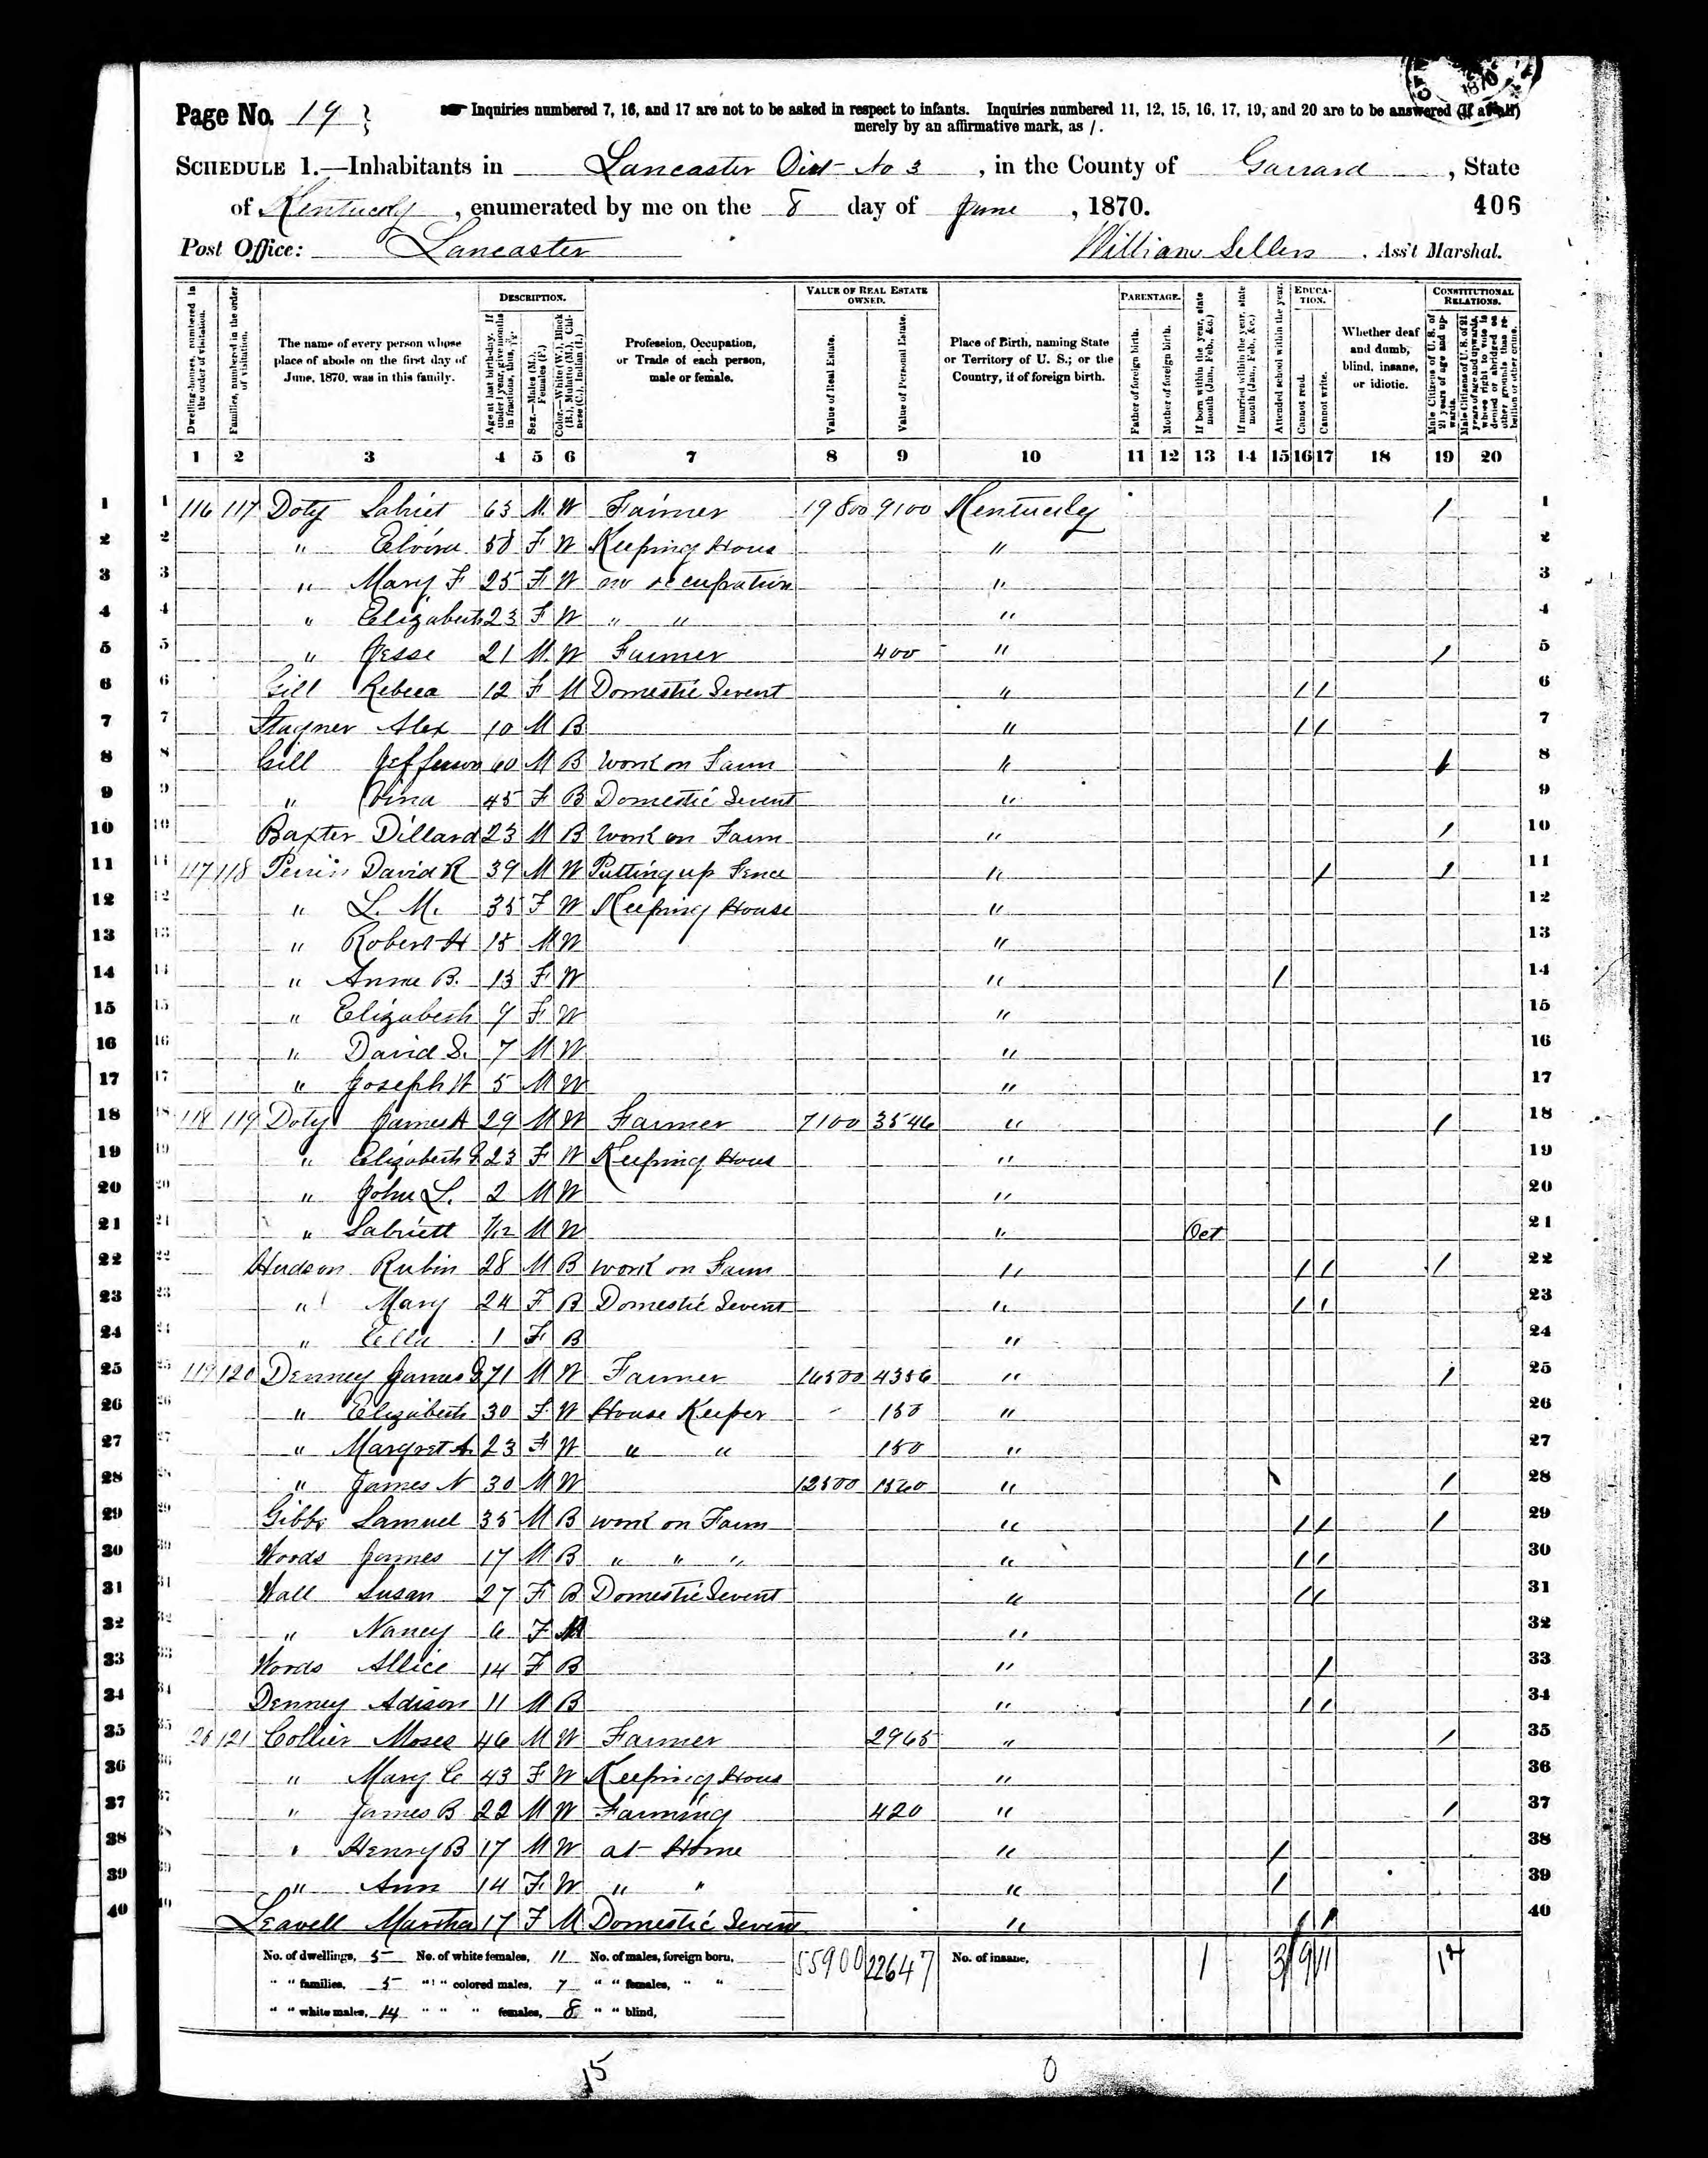 Page No. 19
Inquiries numbered 7, 16, and 17 are not to be asked in respect to infants. Inquiries numbered 11, 12, 15, 16, 17, 19, and 20 are to be answered (if at all)
merely by an affirmative mark, as /.
SCHEDULE 1.—Inhabitants in Lancaster Dist No 3, in the County of Garrard, State
of Kentucky, enumerated by me on the 8 day of June, 1870.
406
Post Office: Lancaster
William Sellers, Ass't Marshal.
Dwelling-houses, numbered in the order of visitation.
Families, numbered in the order of visitation.
The name of every person whose place of abode on the first day of June, 1870, was in this family.
DESCRIPTION.
Age at last birth-day. If under 1 year, give months in fractions, thus, 3/12.
Sex.—Males (M.), Females (F.)
Color.—White (W.), Black (B.), Mulatto (M.), Chinese (C.), Indian (I.)
Profession, Occupation, or Trade of each person, male or female.
VALUE OF REAL ESTATE OWNED.
Value of Real Estate.
Value of Personal Estate.
Place of Birth, naming State or Territory of U. S.; or the Country, if of foreign birth.
PARENTAGE.
Father of foreign birth.
Mother of foreign birth.
If born within the year, state month (Jan., Feb., &c.)
If married within the year, state month (Jan., Feb., &c.)
Attended school within the year.
EDUCATION.
Cannot read.
Cannot write.
Whether deaf and dumb, blind, insane, or idiotic.
CONSTITUTIONAL RELATIONS.
Male Citizens of U. S. of 21 years of age and upwards.
Male Citizens of U. S. of 21 years of age and upwards, whose right to vote is denied or abridged on other grounds than rebellion or other crime.
1 2 3 4 5 6 7 8 9 10 11 12 13 14 15 16 17 18 19 20
1 116 117 Doty Sabriet 63 M W Farmer 19800 9100 Kentucky / 1
2 " Elvira 58 F W Keeping Hous " 2
3 " Mary F 25 F W no occupation " 3
4 " Elizabeth 23 F W " " " 4
5 " Jesse 21 M W Farmer 400 " / 5
6 Gill Rebeca 12 F M Domestic Servent " / / 6
7 Stagner Alex 10 M B " / / 7
8 Gill Jefferson 60 M B work on Farm " / 8
9 " Vina 45 F B Domestic Servent " 9
10 Baxter Dillard 23 M B work on Farm " / 10
11 117 118 David R 39 M W Putting up Fence " / / 11
12 " L. M. 35 F W Keeping House " 12
13 " Robert H 15 M W " 13
14 " Anne B. 13 F W " / 14
15 " Elizabeth 9 F W " 15
16 " David S. 7 M W " 16
17 " Joseph H 5 M W " 17
18 118 119 Doty James A 29 M W Farmer 7100 3546 " / 18
19 " Elizabeth 23 F W Keeping Hous " 19
20 " John L. 2 M W " 20
21 " Sabriett M W " Oct 21
22 Hudson Rubin 28 M B work on Farm " / / / 22
23 " Mary 24 F B Domestic Servent " / / 23
24 " Ella 1 F B " 24
25 119 120 Denney James G 71 M W Farmer 16500 4356 " / 25
26 " Elizabeth 30 F W House Keeper 150 " 26
27 " Margret A. 23 F W " " 150 " 27
28 " James N 30 M W 12500 1560 " / 28
29 Gibbs Samuel 35 M B work on Farm " / / / 29
30 Woods James 17 M B " " " " / / 30
31 Wall Susan 27 F B Domestic Servent " / / 31
32 " Nancy 6 F M " 32
33 Woods Allice 14 F B " / 33
34 Denney Adison 11 M B " / / 34
35 120 121 Collier Moses 46 M W Farmer 2965 " / 35
36 " Mary C 43 F W Keeping Hous " 36
37 " James B 22 M W Farming 420 " / 37
38 " Henry B 17 M W at Home " / 38
39 " Ann 14 F W " " " / 39
40 Leavell Martha 17 F M Domestic Servent " / / 40
No. of dwellings, 5 No. of white females, 11 No. of males, foreign born, 55900 22647 No. of insane, 1 3 9 11 12
" " families, 5 " " colored males, 7 " " females, " "
" " white males, 14 " " " females, 8 " " blind,
15 0